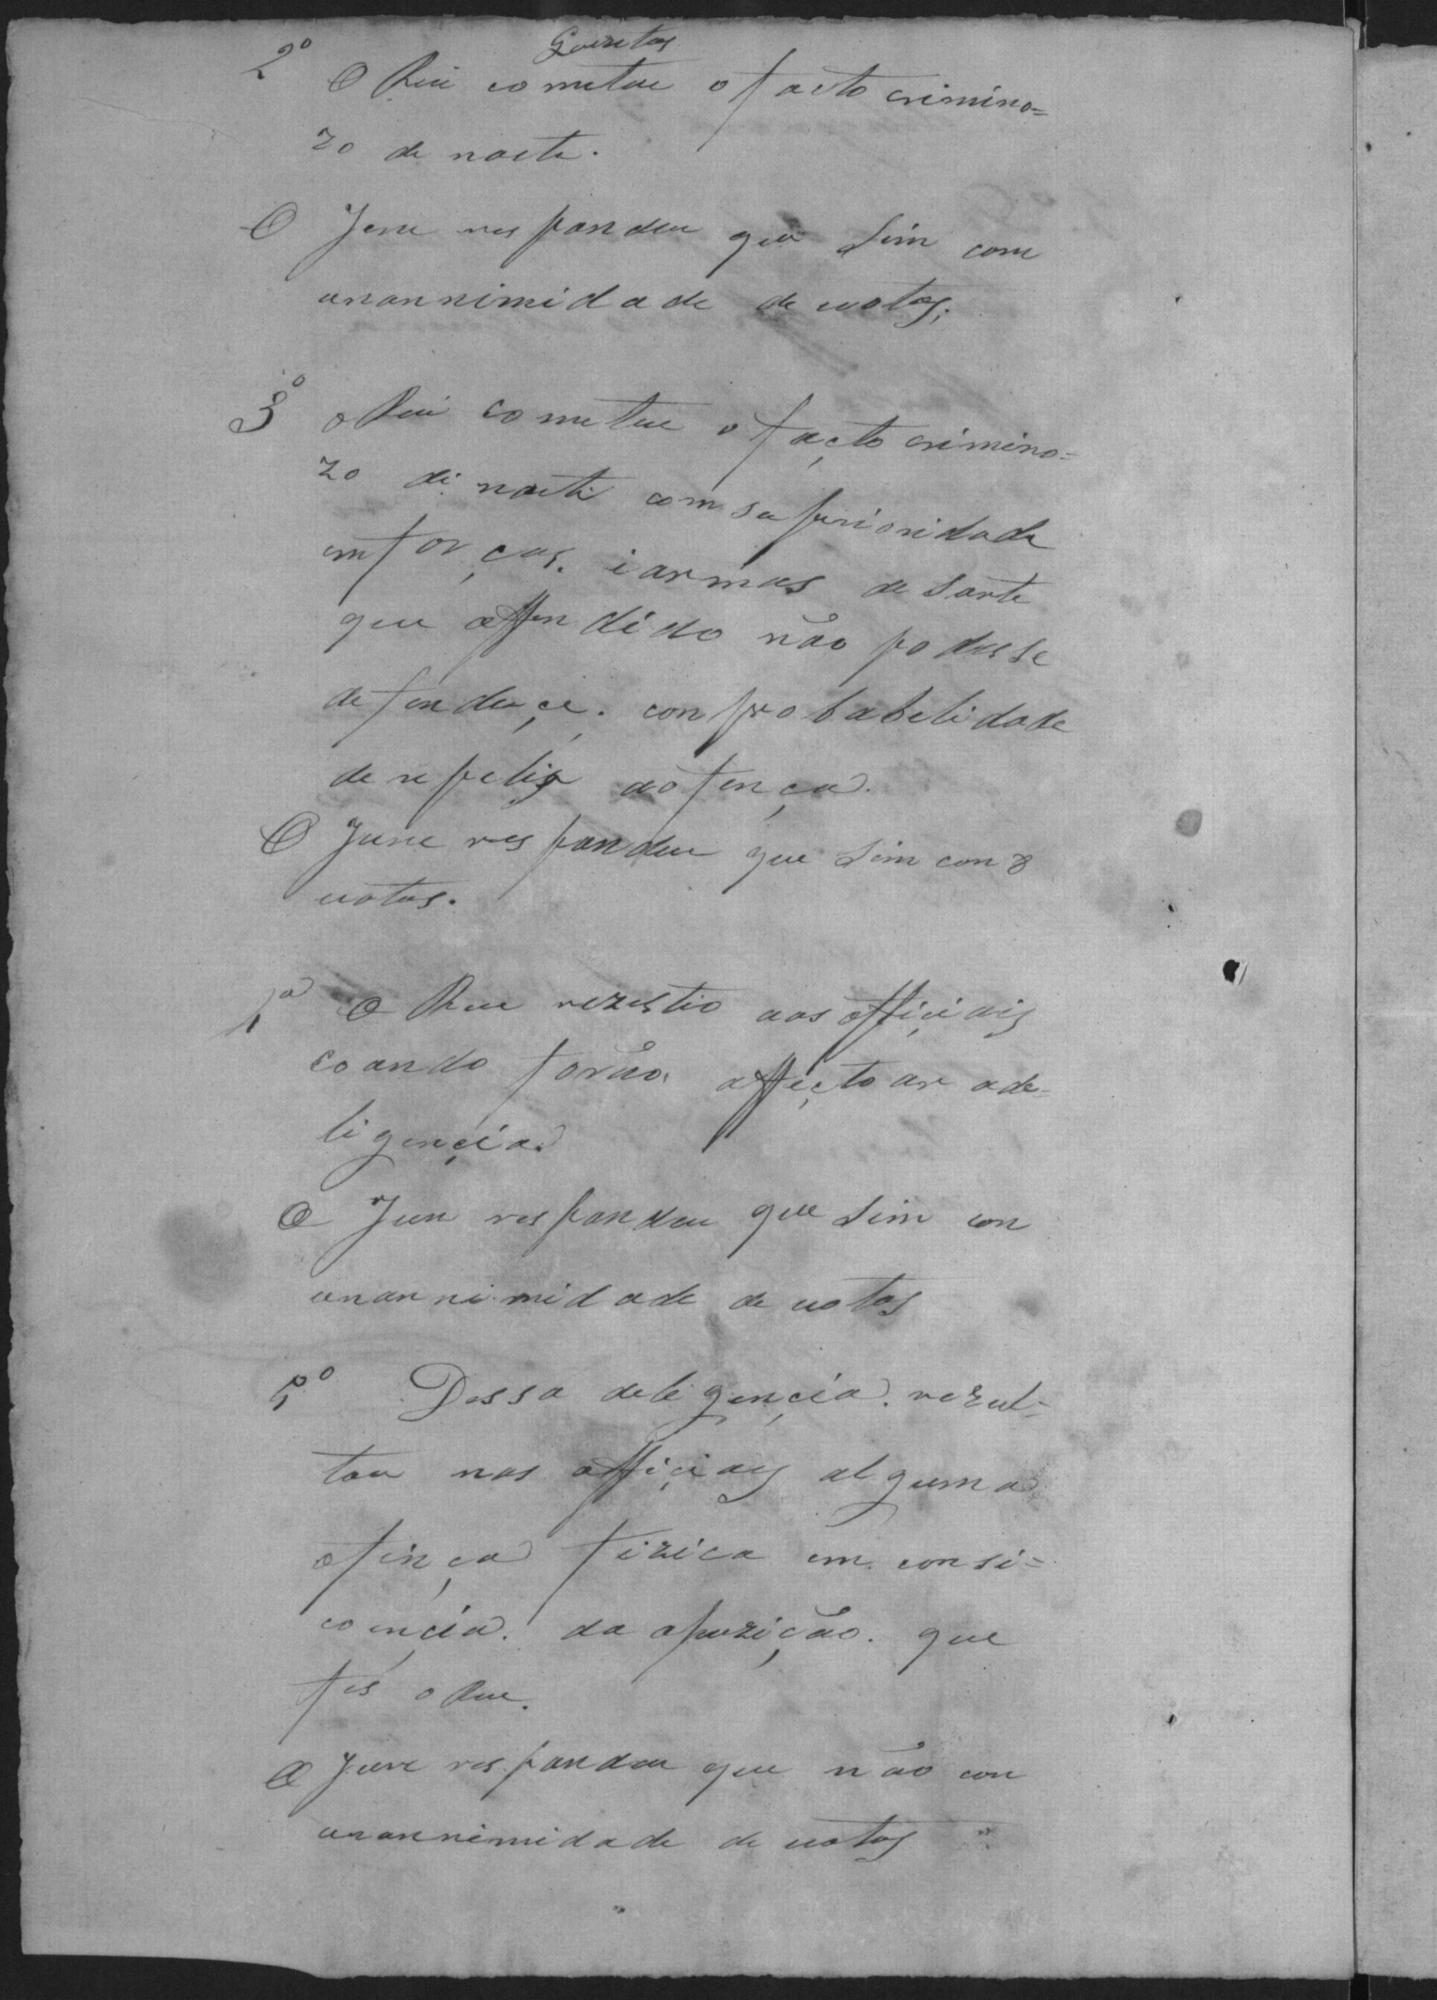 2º O Reu cometeu o facto crimino=
zo de noite.
O Jure respondeu que sim com
unannimidade de votos.
3º o Reu cometeu o facto crimino=
zo di noite com superioridade
em forças. i armas de sorte
que offendido não podesse
defendeçe. con probabelidade
de repelir aofença.
O Jure respondeu que sim con 8
votos.
O Reu rezestio aos officiais
coando forão affectoar ade=
ligencia.
O Jure respondeu que sim con
unannimidade de votos
5º Dessa deligencia. rezul=
tou nos officiais alguma
ofença fizica em consi=
coencia. da opuzição. que
fes o Reu.
O Jure respondeu que não con
unannimidade de votos